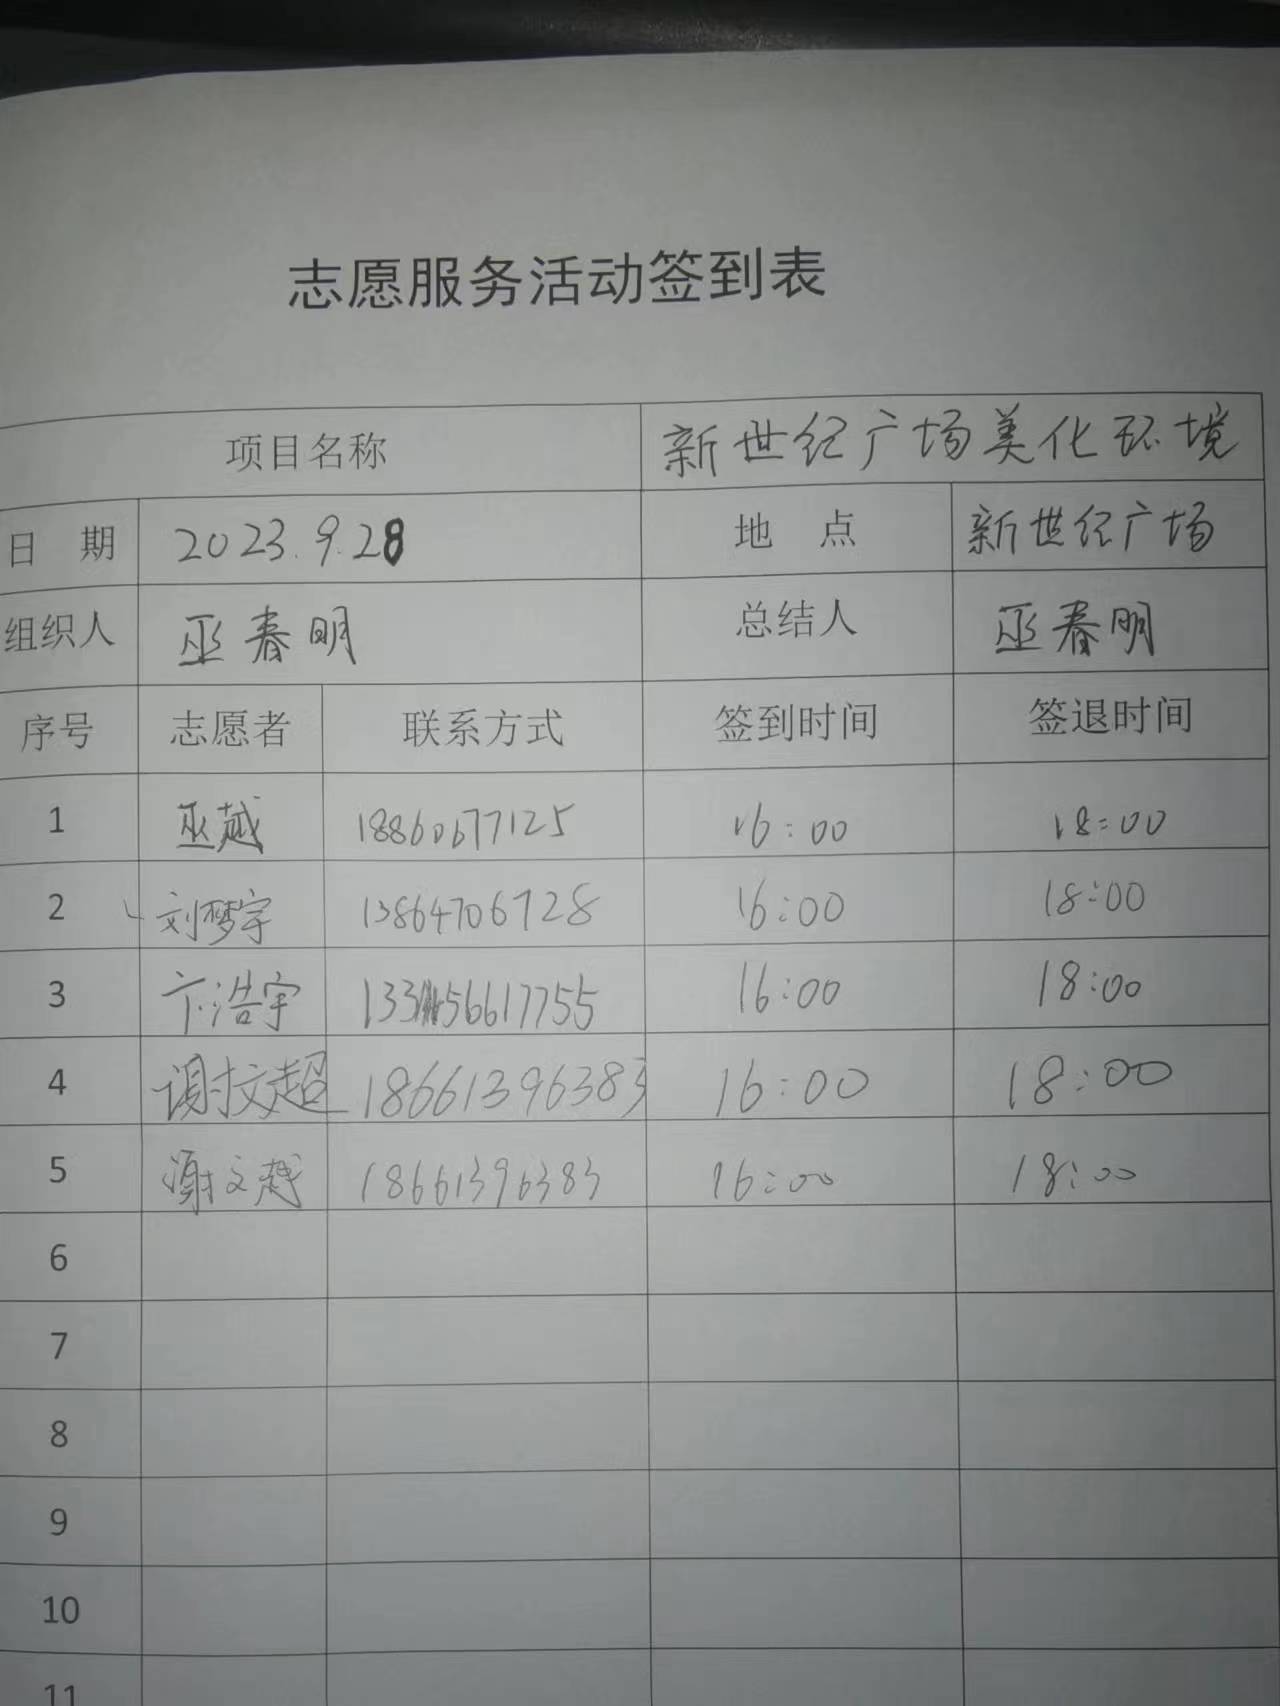 志愿服务活动签到表
项目名称 新世纪广场美化环境
日 期 2023.9.28 地 点 新世纪广场
组织人 巫春明 总结人 巫春明
序号 志愿者 联系方式 签到时间 签退时间
1 巫越 18860677125 16:00 18:00
2 刘梦宇 13864706728 16:00 18:00
3 卞浩宇 13356617755 16:00 18:00
4 谢文超 18661396383 16:00 18:00
5 谢文越 18661396383 16:00 18:00
6
7
8
9
10
11